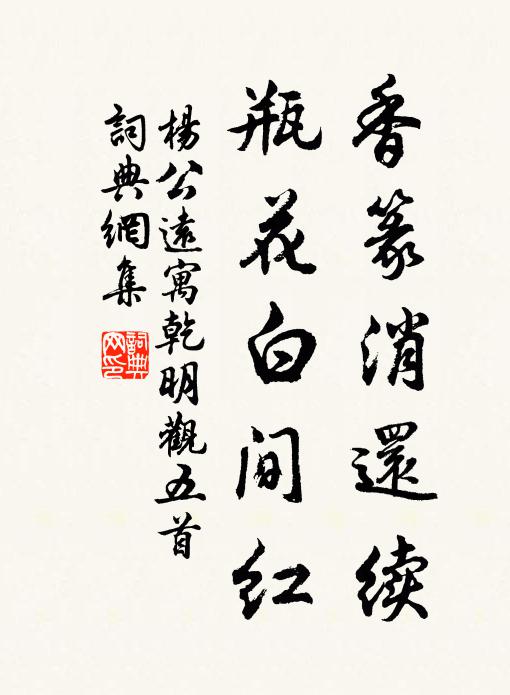 香篆消還续
瓶花白间红
楊公遠寓乾明觀五首
詞典網集
詞典网印